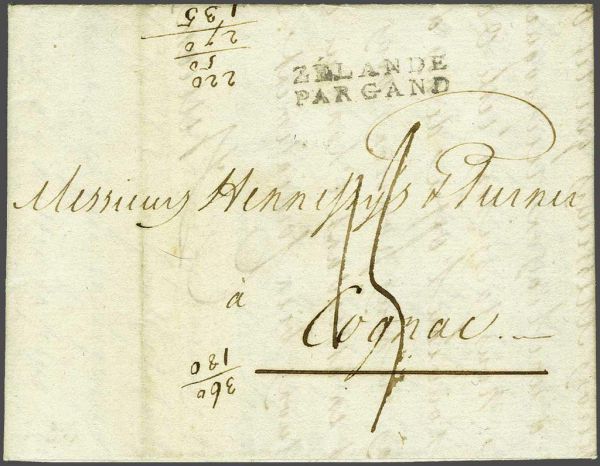 220
50
270
135
ZÉLANDE
PAR GAND
Messieurs Hennessys & Turner
15
à
Cognac.
360
180